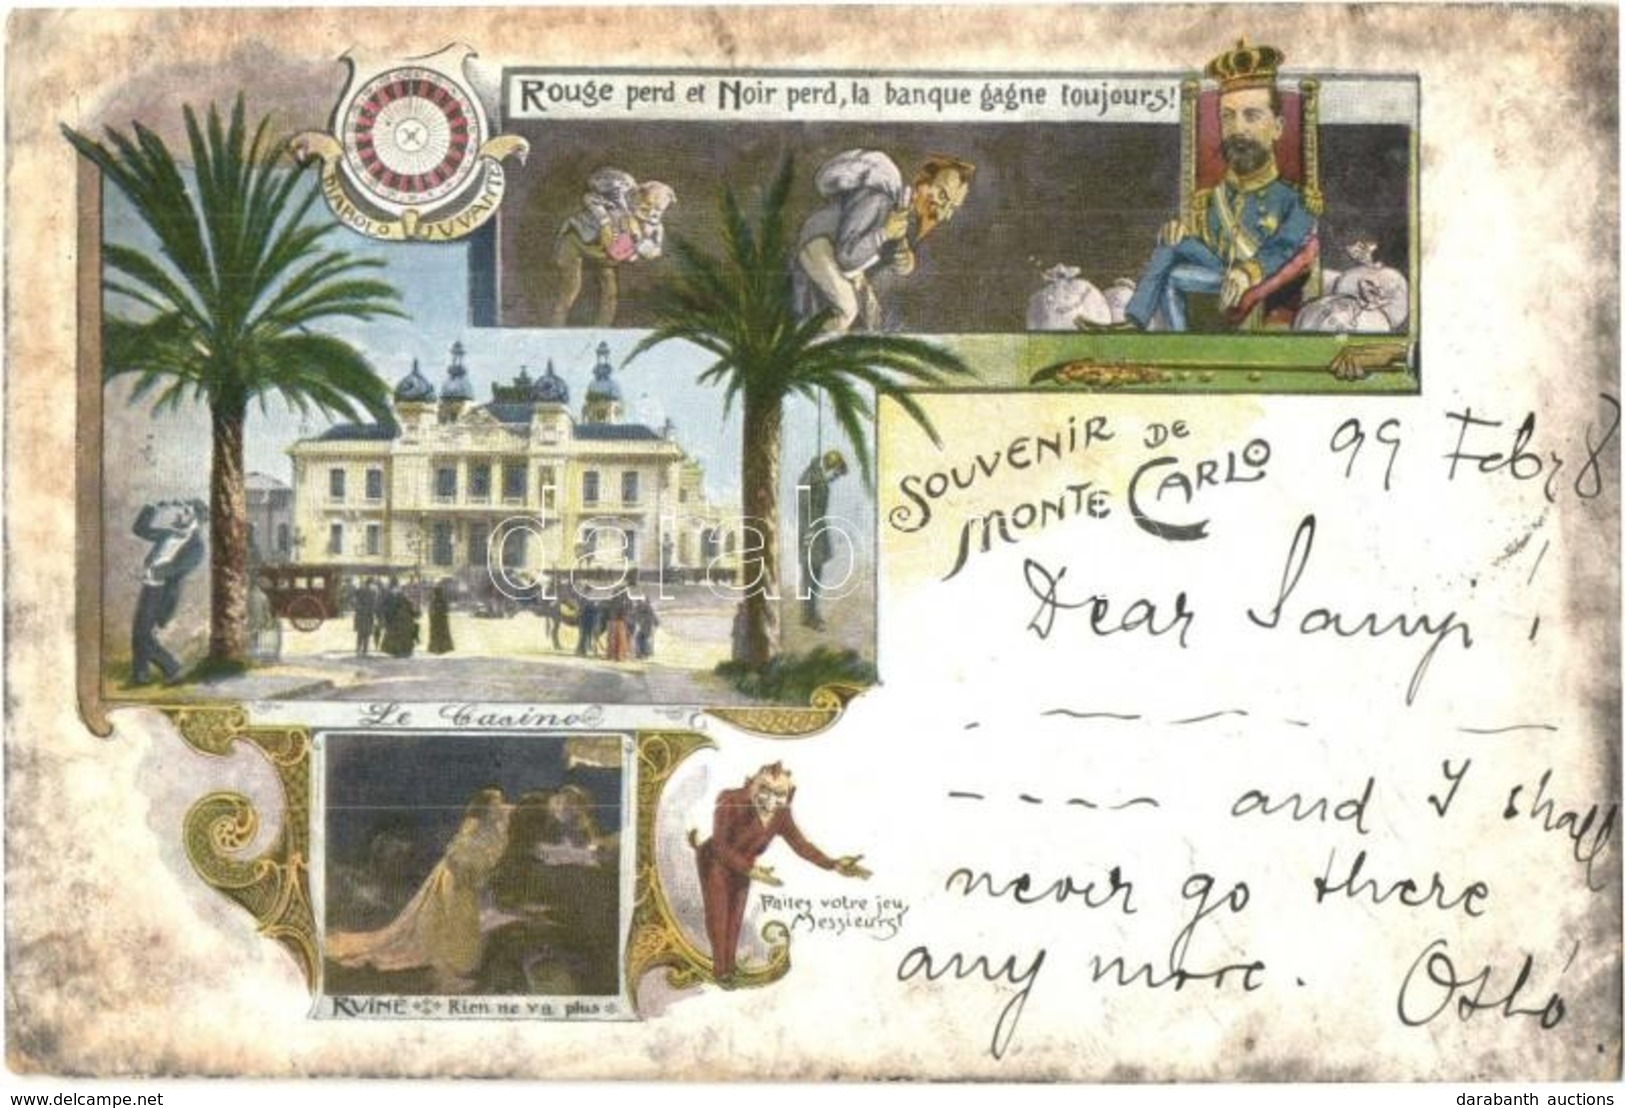 Rouge perd et Noir perd, la banque gagne toujours!
DIABOLO JUVANTE
SOUVENIR DE
MONTE CARLO
99 Febr 8
Dear
and I shall
never go there
any more.
Le Casino
Faites votre jeu,
Messieurs!
RUINE Rien ne va plus
darab
delcampe.net
darabanth auctions